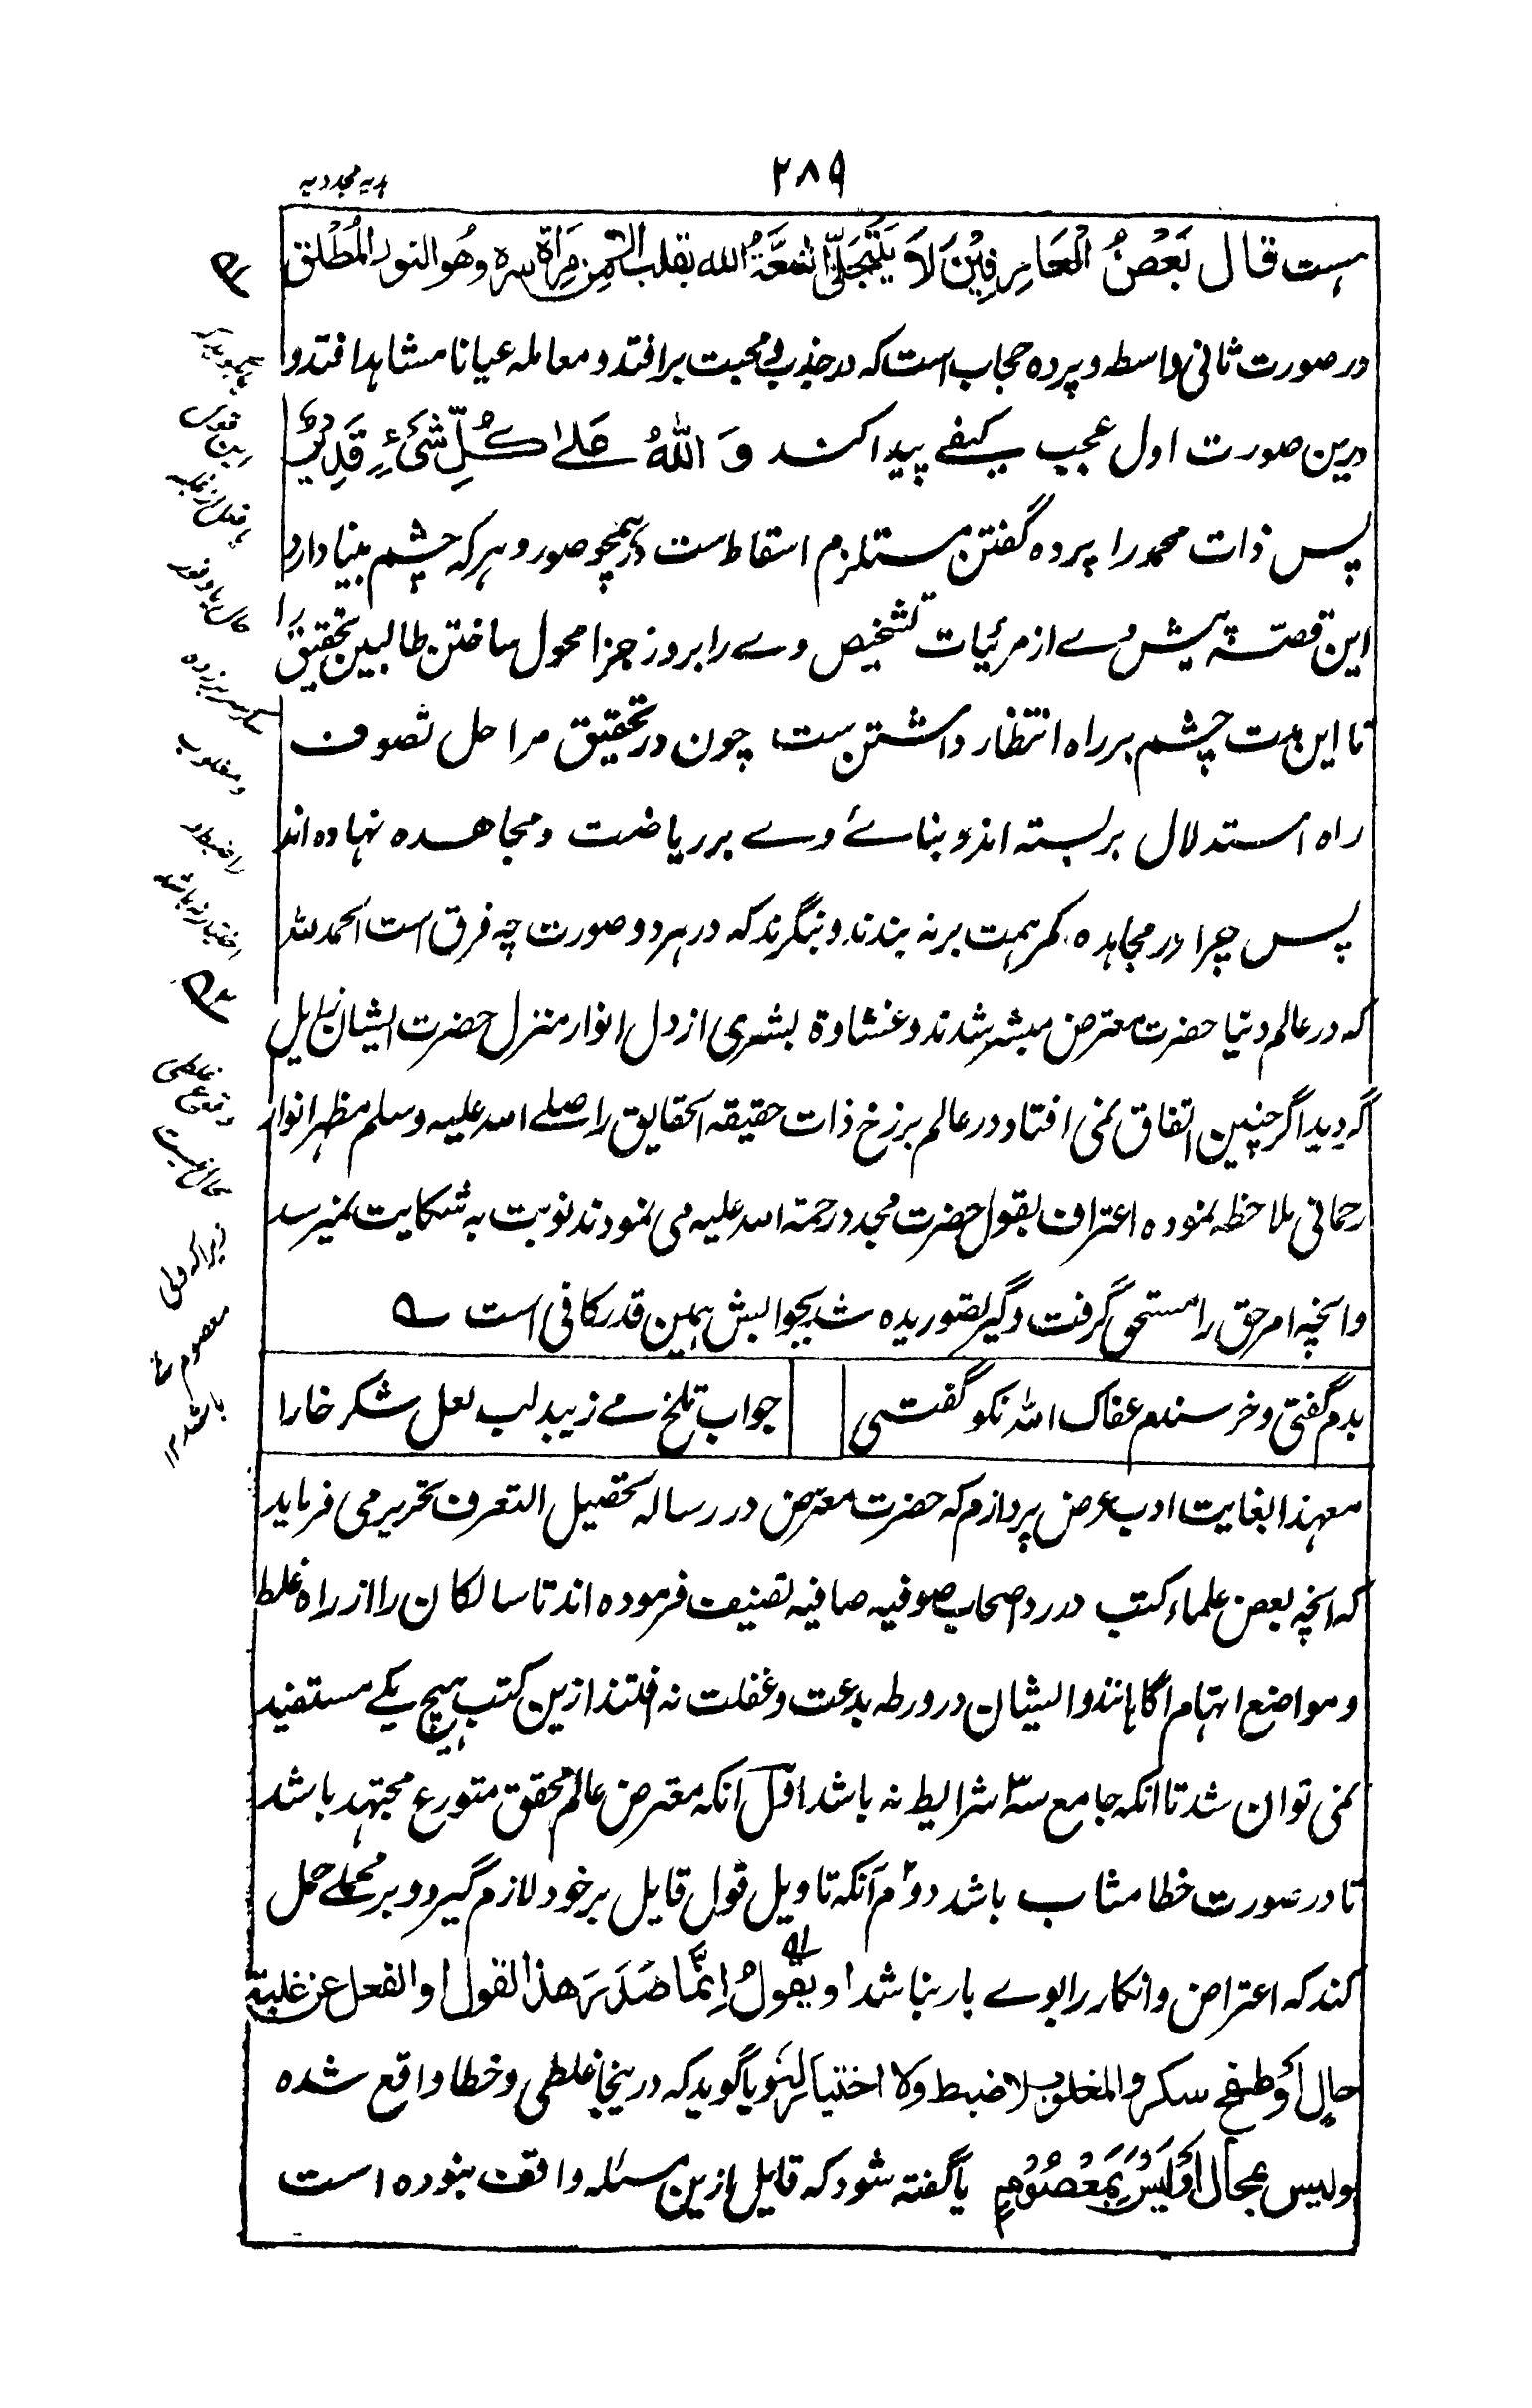 ۲۸۹
ہدیہ مجددیہ
ہست قال بَعْضُ الْعَارِفِيْنَ لَا يَتَجَلّىٰ اَشعَّةُ الله بقلب الامِن مِرَاة سره وهُو النور المُطْلق
در صورت ثانی واسطہ و پردہ حجاب است کہ در جذوبی محبت بر افتد و معاملہ عیانا مشاہد افتد و
درین صورت اول عجب بے کیفے پیدا کنند وَ اللّٰهُ عَلىٰ كُلِّ شَىْءٍ قَدِيْرٌ
پس ذات محمد را پردہ گفتن مستلزم اسقاط ست در ہمچو صور و ہر کہ چشم بینا دارد
این قصّہ پیش وے از مرئیات تشخیص وے را بروز جزا محول ساختن طالبین تحقیق را
تا این مدت چشم بر راہ انتظار داشتن ست چون در تحقیق مراحل تصوف
راہ استدلال بر بستہ اند و بنائے وے بر ریاضت و مجاهدہ نہادہ اند
پس چرا در مجاہدہ کمر ہمت بر نہ بندند و بنگرند کہ در ہر دو صورت چہ فرق است الحمد للہ
کہ در عالم دنیا حضرت معترض مبشر شدند و غشاوۃ بشری از دل انوار منزل حضرت ایشان زایل
گردید اگر چنین اتفاق نمی افتاد در عالم برزخ ذات حقیقۃ الحقایق را صلے اللہ علیہ وسلم مظہر انوار
رحمانی ملاحظہ نمودہ اعتراف بقول حضرت مجدد رحمۃ اللہ علیہ می نمودند نوبت بہ شکایت نمیرسد
و انچہ امر حق را مستحق گرفت و گیر تصوریدہ شد بجوابش ہمین قدر کافی است ؎
بدم گفتی و خرسندم عفاک اللہ نکو گفتی
جواب تلخ مے زیبد لب لعل شکر خارا
معہذا بغایت ادب عرض پردازم کہ حضرت معترض در رسالہ تحصیل التعرف تحریر می فرماید
کہ انچہ بعض علماء کتب در رد اصحاب صوفیہ صافیہ تصنیف فرمودہ اند تا سالکان را از راہ غلط
و مواضع ابہام آگاہانند و ایشان در ورطہ بدعت و غفلت نہ افتند ازین کتب ہیچ یکے مستفید
نمی توان شد تا انکہ جامع سہ شرایط نہ باشد اول آنکہ معترض عالم محقق متورع مجتہد باشد
تا در صورت خطا مثاب باشد دوم آنکہ تاویل قول قایل بر خود لازم گیرد و بر محملے حمل
کند کہ اعتراض و انکار را بوے بار نباشد او يقولُ اِنَّمَا صَدَرَ هذا القول او الفعل عن غلبة
حالٍ اَوْ طفح سكر و المغلوب لا ضبط ولا اختيار لہٗ و یا گوید کہ درینجا غلطی و خطا واقع شدہ
وليس بمحال اَوْ لَيْسَ بِمَعْصُوْمٍ یا گفتہ شود کہ قایل ازین مسئلہ واقف نبودہ است
این قول
یا فعل از غلبہ
حال یا وفور
سکر سر بر زدہ
و مغلوب
را ضبط و
اختیار نہ باشد
وقوع غلطی
محال نیست
زیرا کہ ولی
معصوم نمی
باشد ۱۲